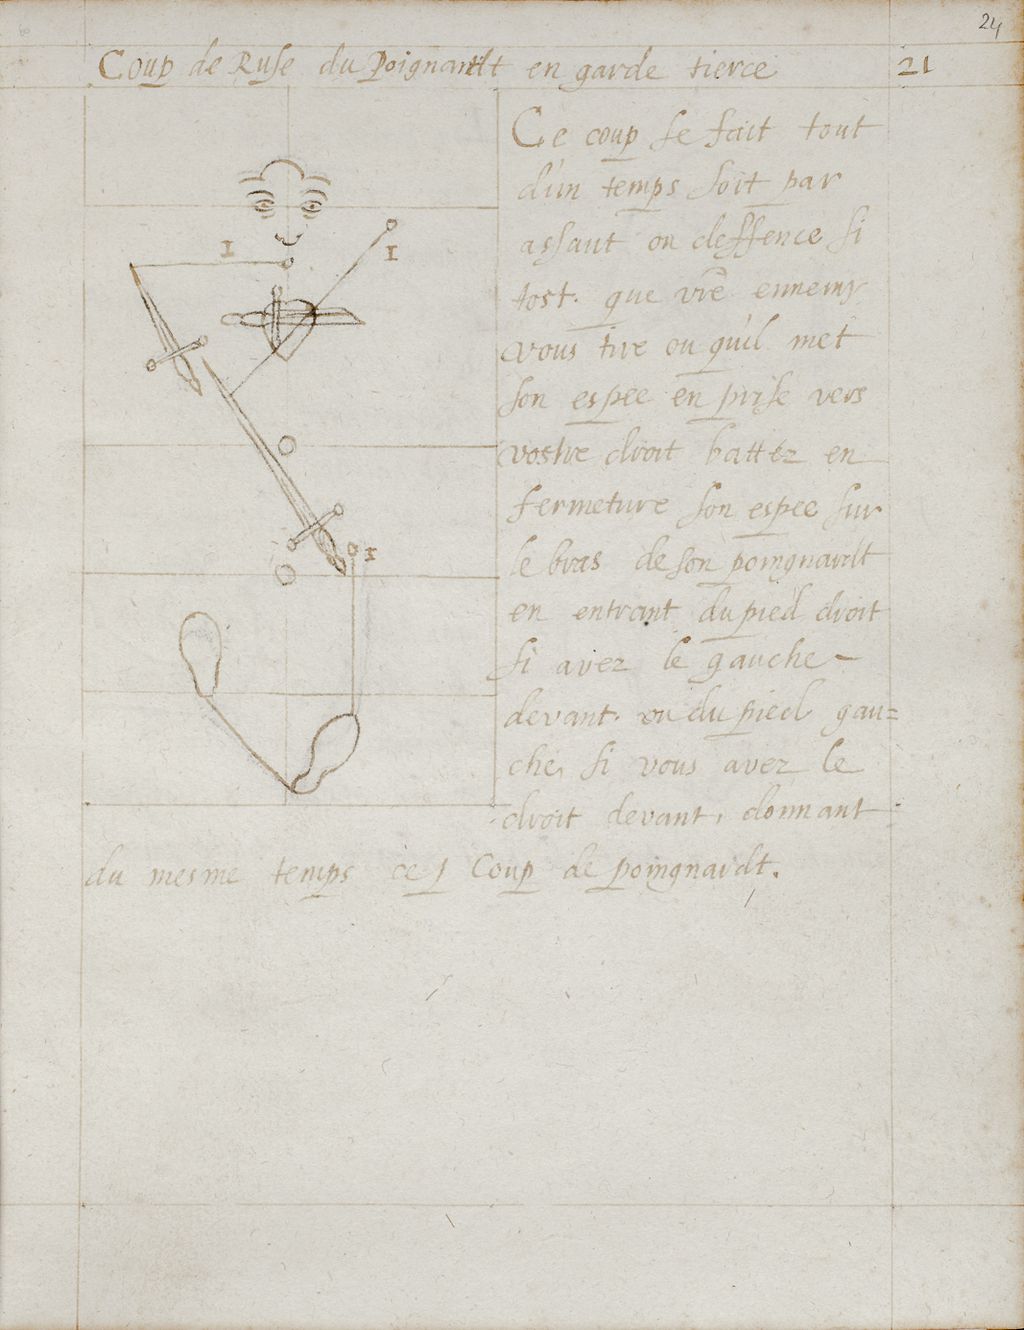 24
Coup de Ruse du Poignardt en garde tierce 21
Ce coup se fait tout
d'un temps soit par
assaut ou deffence si
tost. que vre ennemy
vous tire ou qu'il met
son espee en prise vers
vostre droit battez en
fermeture son espee sur
le bras de son poingnardt
en entrant du pied droit
si avez le gauche
devant. ou du pied gau=
che, si vous avez le
droit devant, donnant
du mesme temps ce 1 Coup de poingnardt.
1
1
1